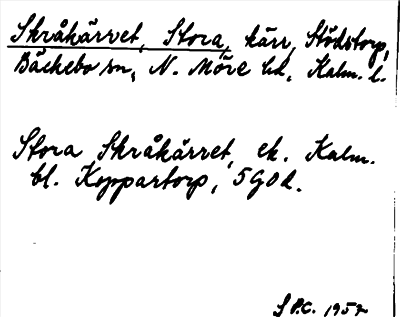 Skråkärret, Stora, kärr, Stödstorp,
Bäckebo sn, N. Möre hd, Kalm. l.
Stora Skråkärret, ek. Kalm.
bl. Koppartorp, 5 G O d.
S P.C. 1952